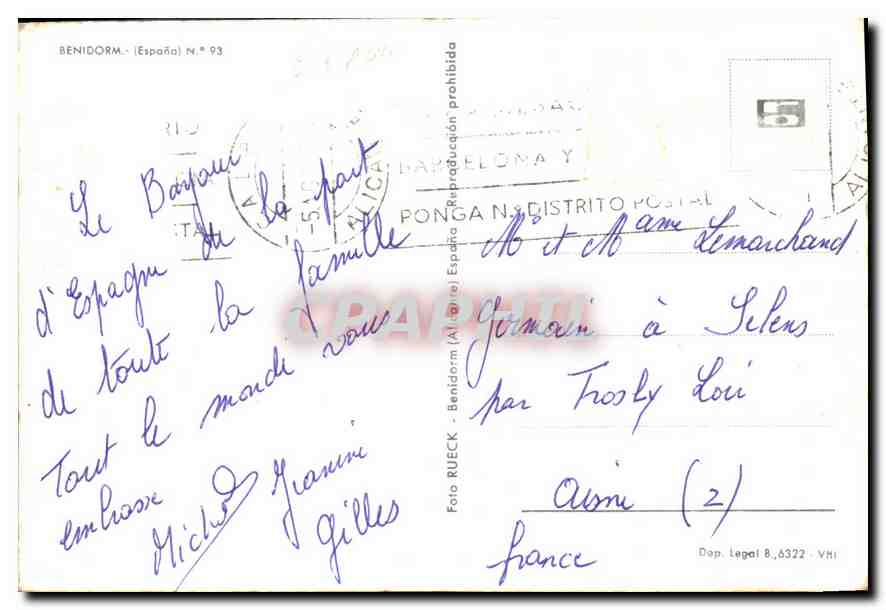 BENIDORM.- (España) N.º 93
Le Bonjour
d'Espagne de la part
de toute la famille
Tout le monde vous
embrasse
Michel Jeanine
Gilles
Foto RUECK - Benidorm (Alicante) España - Reproducción prohibida
5
BARCELONA Y
PONGA N.º DISTRITO POSTAL
ALICA
ALIC
CPAPHIL
Mr et Mame Lemarchand
Germain à Selens
par Trosly Loire
Aisne (2)
france
Dep. Legal B.,6322 - VIII